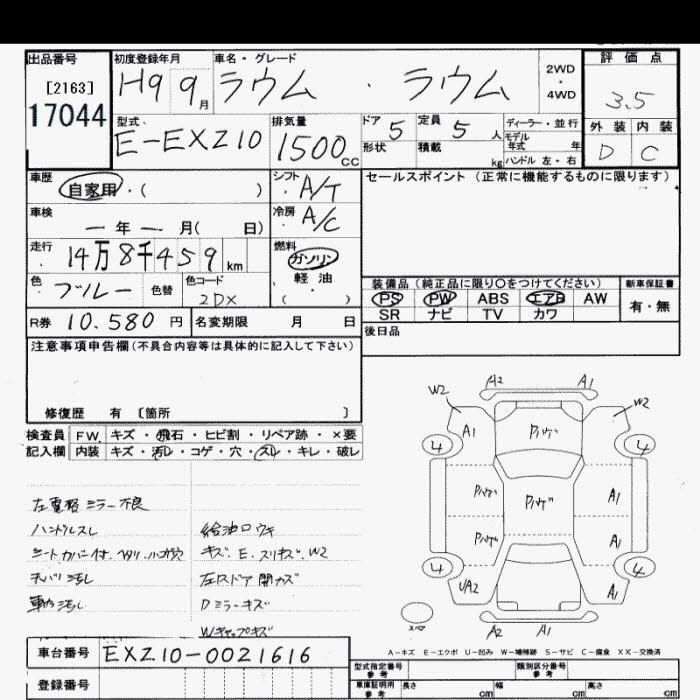 出品番号
[2163]
17044
初度登録年月
H9 9月
車名・グレード
ラウム ・ ラウム
2WD
・
4WD
評価点
3.5
外装 内装
D C
型式
E-EXZ10
排気量
1500cc
ドア 5
形状
定員 5人
積載 kg
ディーラー・並行
モデル年式 年
ハンドル 左・右
車歴
自家用・( )
シフト
A/T
セールスポイント (正常に機能するものに限ります)
車検
ー年ー月( 日)
冷房
A/C
走行
14万8千459km
燃料
ガソリン
軽油
( )
色
ブルー
色替
色コード
2DX
装備品 (純正品に限り○をつけてください)
PS PW ABS エアB AW
SR ナビ TV カワ
新車保証書
有・無
R券 10.580円
名変期限 月 日
後日品
注意事項申告欄(不具合内容等は具体的に記入して下さい)
修復歴 有 [箇所 ]
検査員
記入欄
FW. キズ・飛石・ヒビ割・リペア跡・×要
内装 キズ・汚レ・コゲ・穴・スレ・キレ・破レ
左電格ミラー不良
ハンドルスレ
シートカバー付
天バリ汚レ
給油口ウキ
キズ.E.スリキズ.W2
Dミラーキズ
Wキャップキズ
W2 A2 A1 W2
A1
4 4
A1
A1
4 4
A2 A1
スペア
A-キズ E-エクボ U-凹み W-補修跡 S-サビ C-腐食 XX-交換済
車台番号
EXZ10-0021616
登録番号
型式指定番号
参考
類別区分番号
参考
車庫証明用
参考
長さ cm
幅 cm
高さ cm